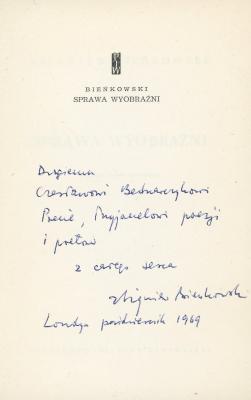 BIEŃKOWSKI
SPRAWA WYOBRAŹNI
Drogiemu
Czesławowi Bednarczykowi
Przyjacielowi poezji
i poetów
z całego serca
Zbigniew Bieńkowski
Londyn październik 1969